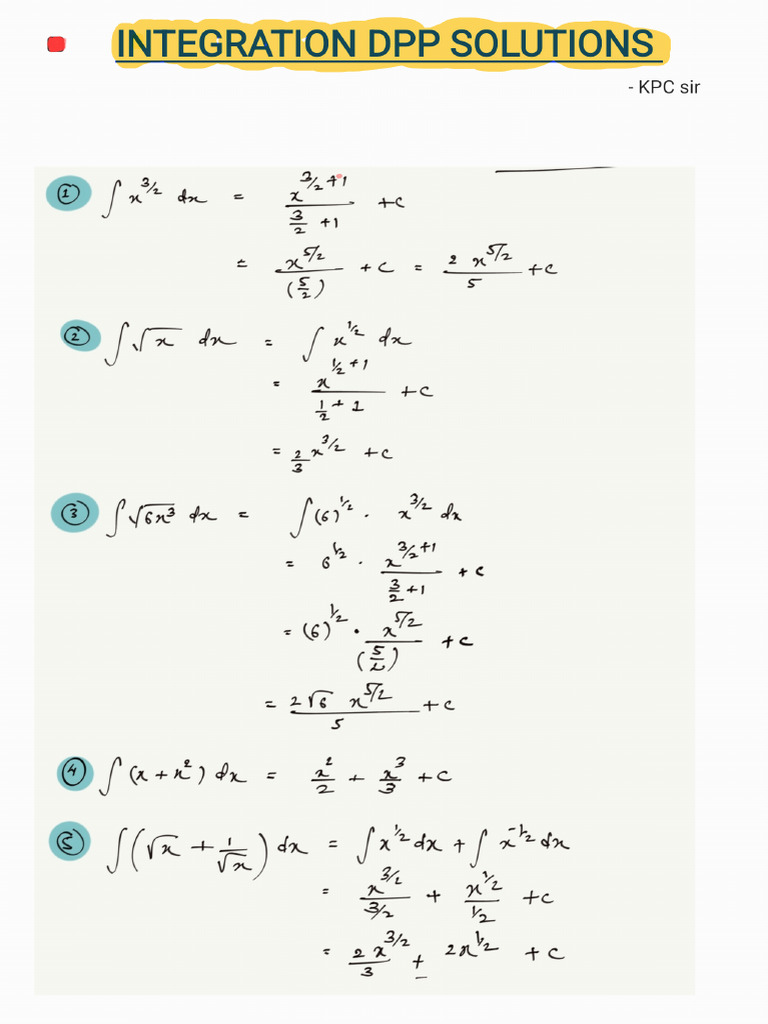 INTEGRATION DPP SOLUTIONS
- KPC sir
① ∫ x^{3/2} dx = x^{3/2 +1} / (3/2 +1) +c
= x^{5/2} / (5/2) + c = 2 x^{5/2} / 5 + c
② ∫ √x dx = ∫ x^{1/2} dx
= x^{1/2 +1} / (1/2 + 1) + c
= 2/3 x^{3/2} + c
③ ∫ √6x³ dx = ∫ (6)^{1/2} · x^{3/2} dx
= 6^{1/2} · x^{3/2 +1} / (3/2 +1) + c
= (6)^{1/2} · x^{5/2} / (5/2) + c
= 2√6 x^{5/2} / 5 + c
④ ∫ (x + x²) dx = x²/2 + x³/3 + c
⑤ ∫ (√x + 1/√x) dx = ∫ x^{1/2} dx + ∫ x^{-1/2} dx
= x^{3/2} / 3/2 + x^{1/2} / 1/2 + c
= 2 x^{3/2} / 3 + 2x^{1/2} + c